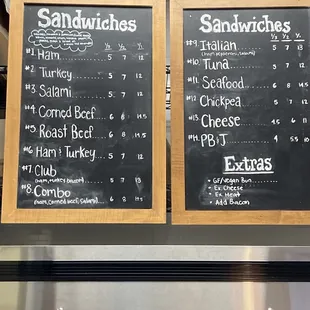 Sandwiches
¼ ½ 1/1
#1 Ham 5 7 12
#2 Turkey 5 7 12
#3 Salami 5 7 12
#4 Corned Beef 6 8 14.5
#5 Roast Beef 6 8 14.5
#6 Ham & Turkey 5 7 12
#7 Club 5 7 12
#8 Combo
(Ham, Corned Beef, Salami) 6 8
Sandwiches
#9 Italian 5 7 13
#10 Tuna 5 7 12
#11 Seafood 5 7 12
#12 Chickpea 5 7 12
#13 Cheese 4.5 6 11
#14 PB&J 4 5.5 10
Extras
• GF/Vegan Bun
• Ex Cheese
• Ex Meat
• Add Bacon